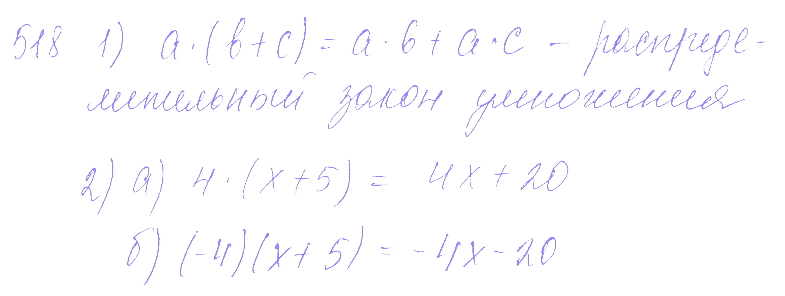 518 1) a·(b+c)=a·b+a·c – распреде-
лительный закон умножения
2) а) 4·(x+5)= 4x+20
б) (-4)(x+5)=-4x-20